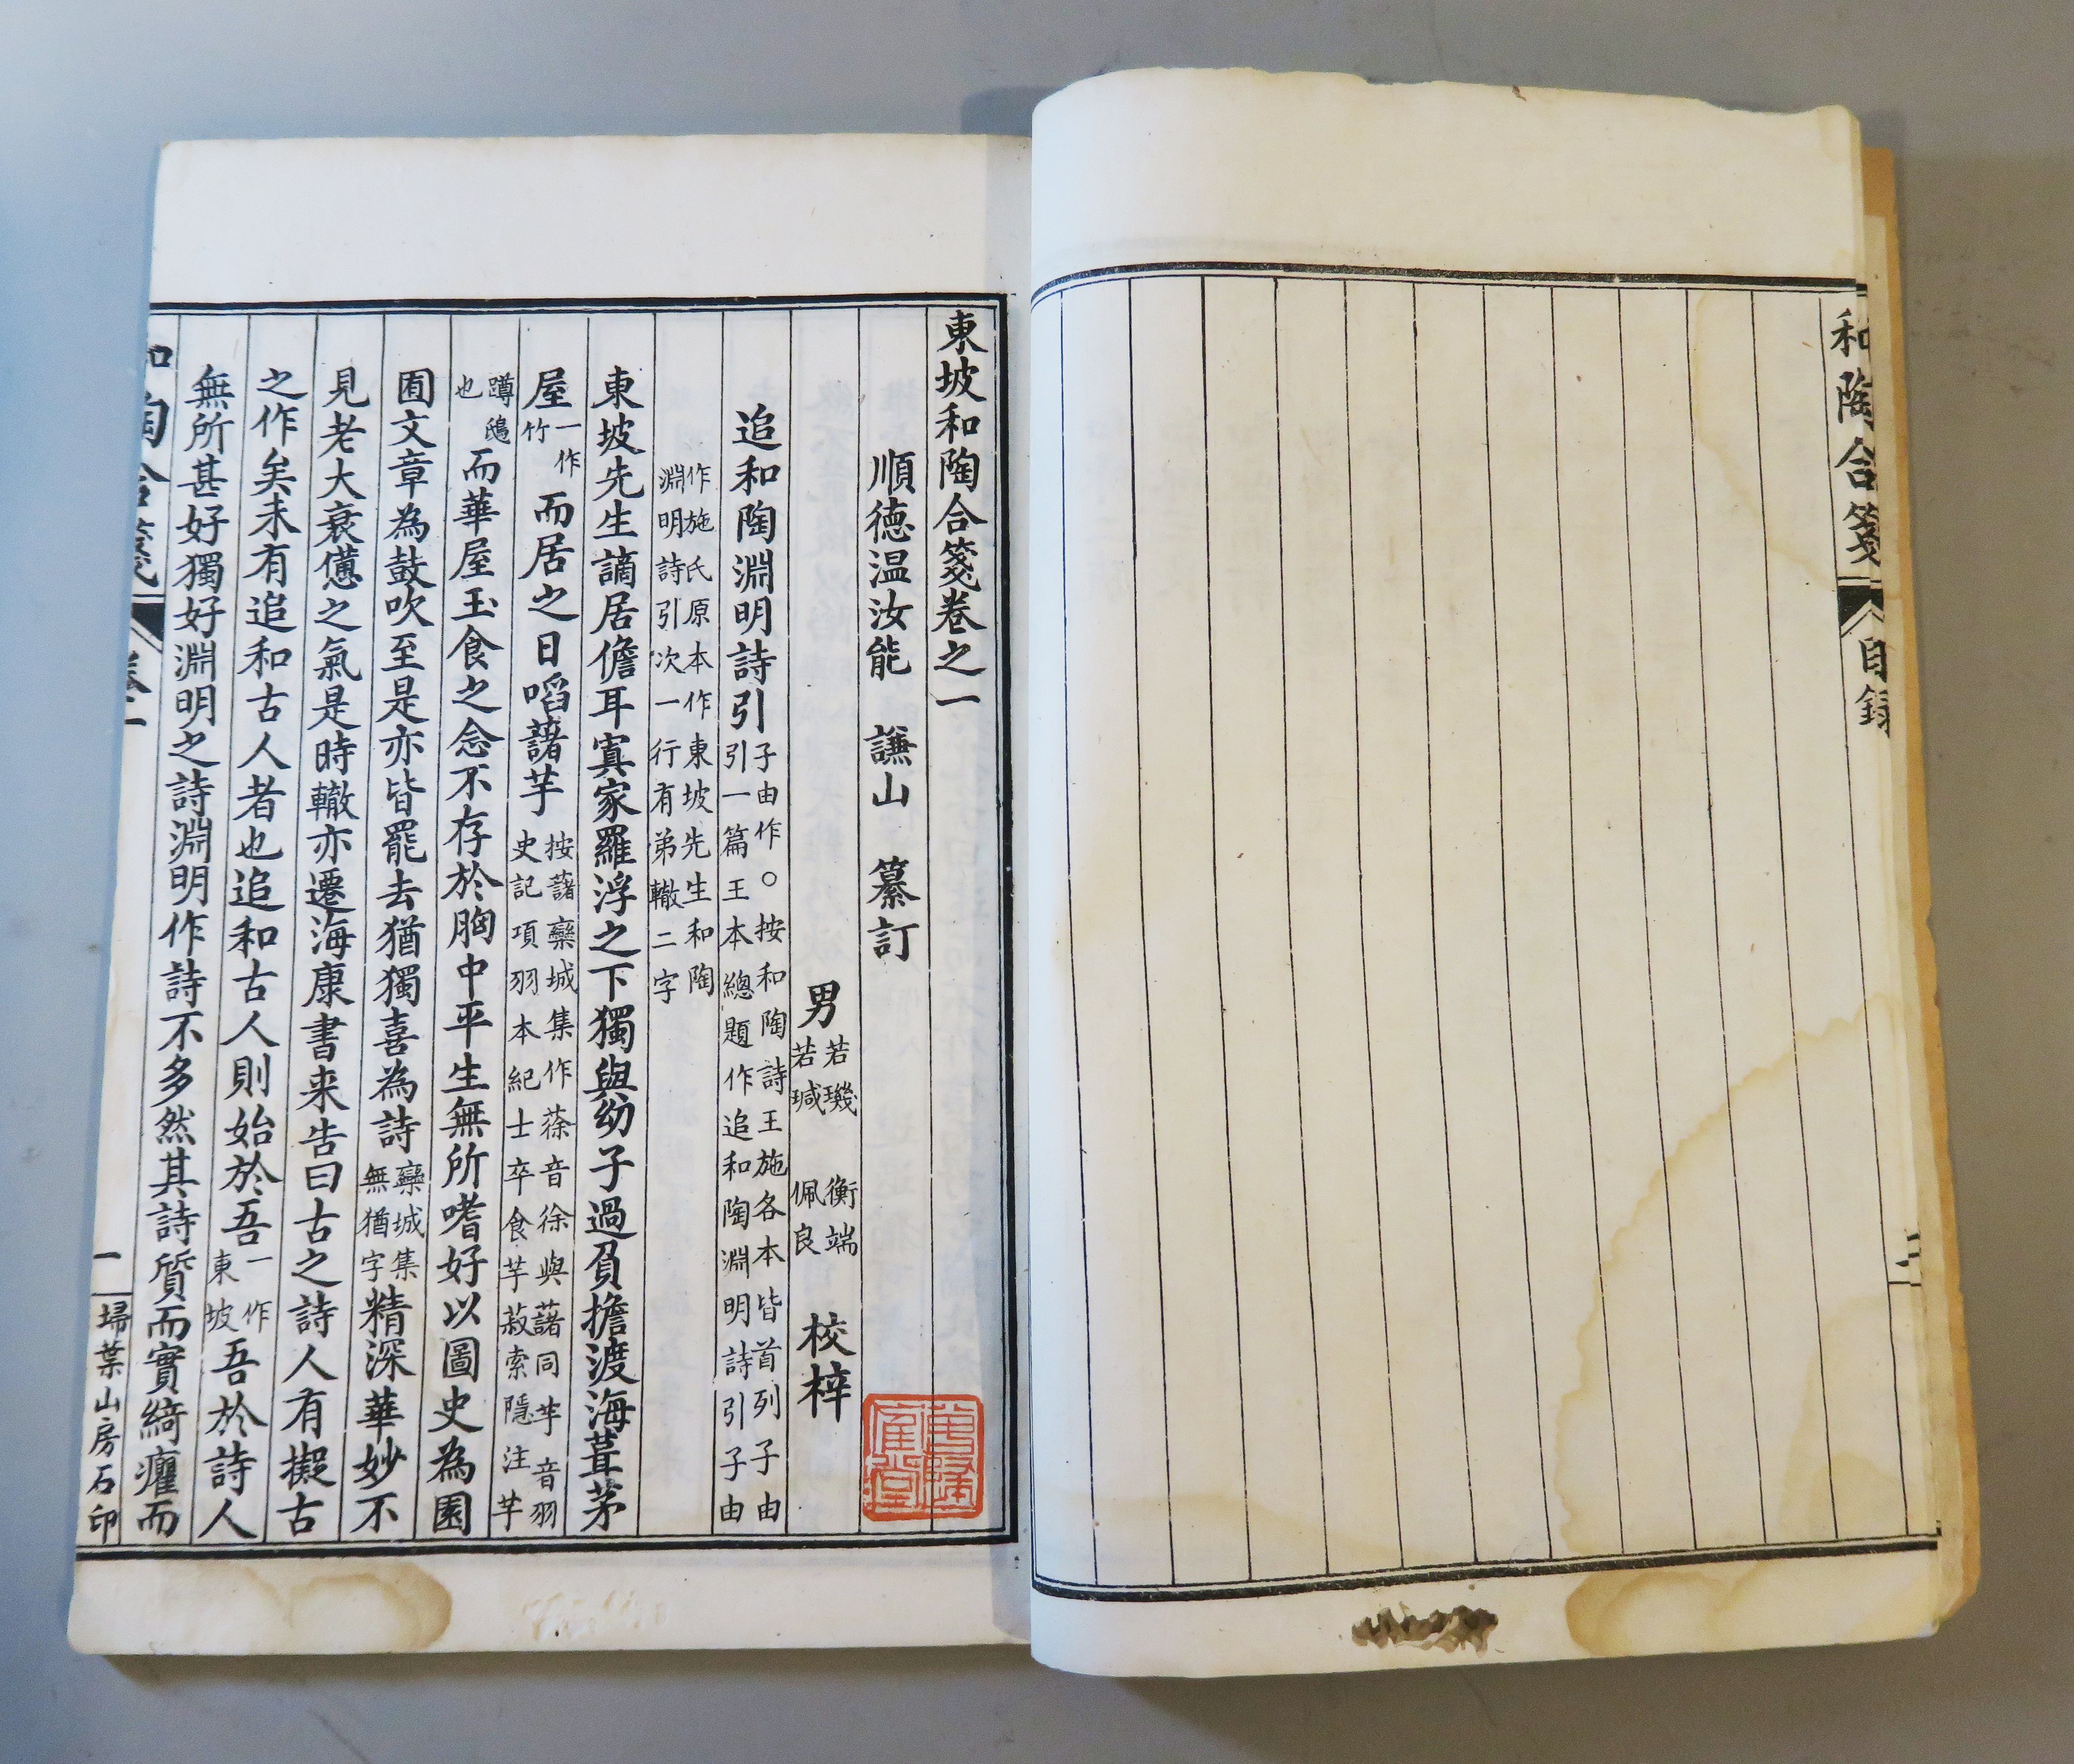 和陶合箋
目錄
二
東坡和陶合箋卷之一
順德温汝能 謙山 纂訂
男若璣若瑊 衡端佩良 校梓
追和陶淵明詩引子由作○按和陶詩王施各本皆首列子由引一篇王本總題作追和陶淵明詩引子由
作施氏原本作東坡先生和陶淵明詩引次一行有弟轍二字
東坡先生謫居儋耳寘家羅浮之下獨與幼子過負擔渡海葺茅
屋一作竹而居之日啗藷芋按藷欒城集作蒣音徐與藷同芋音羽史記項羽本紀士卒食芋菽索隱注芋
蹲鴟也而華屋玉食之念不存於胸中平生無所嗜好以圖史為園
囿文章為鼓吹至是亦皆罷去猶獨喜為詩欒城集無猶字精深華妙不
見老大衰憊之氣是時轍亦遷海康書来告曰古之詩人有擬古
之作矣未有追和古人者也追和古人則始於吾一作東坡吾於詩人
無所甚好獨好淵明之詩淵明作詩不多然其詩質而實綺癯而
和陶合箋
卷一
一
埽葉山房石印